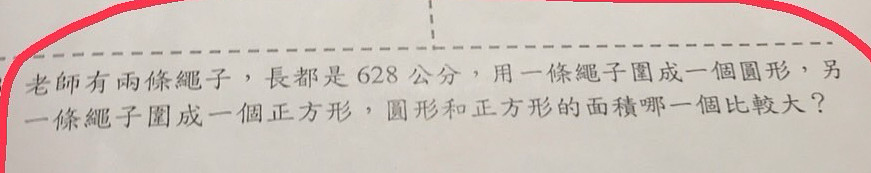 老師有兩條繩子，長都是 628 公分，用一條繩子圍成一個圓形，另
一條繩子圍成一個正方形，圓形和正方形的面積哪一個比較大？